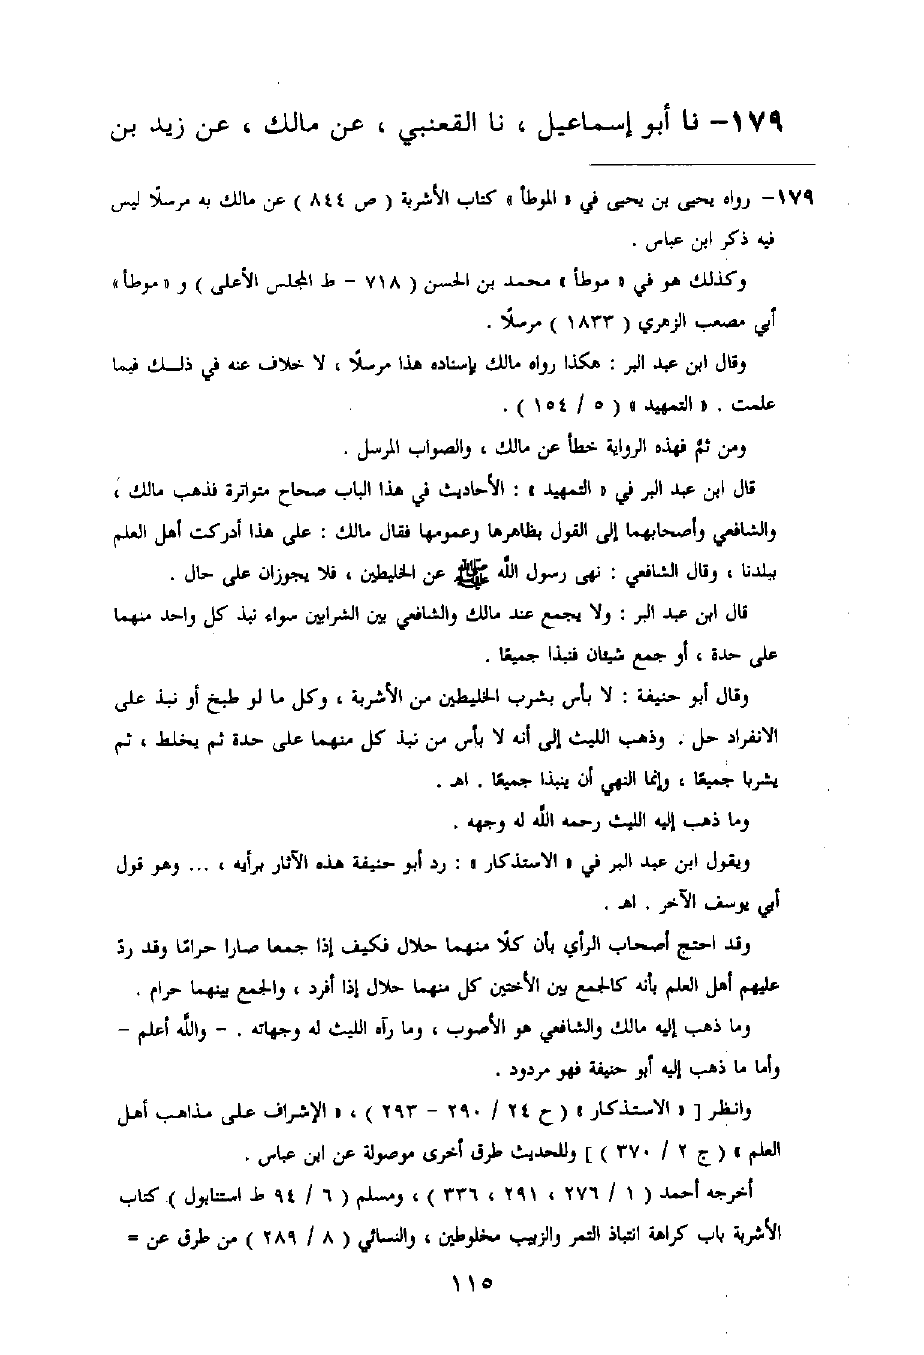 ١٧٩- نا أبو إسماعيل ، نا القعنبي ، عن مالك ، عن زيد بن
١٧٩- رواه يحيى بن يحيى في « الموطأ » كتاب الأشربة ( ص ٨٤٤ ) عن مالك به مرسلًا ليس
فيه ذكر ابن عباس .
وكذلك هو في « موطأ » محمد بن الحسن ( ٧١٨ - ط المجلس الأعلى ) و « موطأ »
أبي مصعب الزهري ( ١٨٣٣ ) مرسلًا .
وقال ابن عبد البر : هكذا رواه مالك بإسناده هذا مرسلًا ، لا خلاف عنه في ذلك فيما
علمت . « التمهيد » ( ٥ / ١٥٤ ) .
ومن ثمَّ فهذه الرواية خطأ عن مالك ، والصواب المرسل .
قال ابن عبد البر في « التمهيد » : الأحاديث في هذا الباب صحاح متواترة فذهب مالك ،
والشافعي وأصحابهما إلى القول بظاهرها وعمومها فقال مالك : على هذا أدركت أهل العلم
ببلدنا ، وقال الشافعي : نهى رسول الله ﷺ عن الخليطين ، فلا يجوزان على حال .
قال ابن عبد البر : ولا يجمع عند مالك والشافعي بين الشرابين سواء نبذ كل واحد منهما
على حدة ، أو جمع شيئان فنبذا جميعًا .
وقال أبو حنيفة : لا بأس بشرب الخليطين من الأشربة ، وكل ما لو طبخ أو نبذ على
الانفراد حل . وذهب الليث إلى أنه لا بأس من نبذ كل منهما على حدة ثم يخلط ، ثم
يشربا جميعًا ، وإنما النهي أن ينبذا جميعًا . اهـ .
وما ذهب إليه الليث رحمه الله له وجهه .
ويقول ابن عبد البر في « الاستذكار » : رد أبو حنيفة هذه الآثار برأيه ، ... وهو قول
أبي يوسف الآخر . اهـ .
وقد احتج أصحاب الرأي بأن كلًا منهما حلال فكيف إذا جمعا صارا حرامًا وقد ردّ
عليهم أهل العلم بأنه كالجمع بين الأختين كل منهما حلال إذا أفرد ، والجمع بينهما حرام .
وما ذهب إليه مالك والشافعي هو الأصوب ، وما رآه الليث له وجهاته . - والله أعلم -
وأما ما ذهب إليه أبو حنيفة فهو مردود .
وانظر [ « الاستذكار » ( ح ٢٤ / ٢٩٠ - ٢٩٣ ) ، « الإشراف على مذاهب أهل
العلم » ( ج ٢ / ٣٧٠ ) ] وللحديث طرق أخرى موصولة عن ابن عباس .
أخرجه أحمد ( ١ / ٢٧٦ ، ٢٩١ ، ٣٣٦ ) ، ومسلم ( ٦ / ٩٤ ط استنابول ) كتاب
الأشربة باب كراهة انتباذ التمر والزبيب مخلوطين ، والنسائي ( ٨ / ٢٨٩ ) من طرق عن =
١١٥